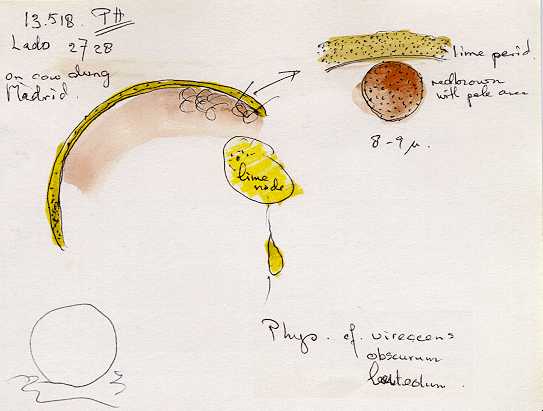 13.518. PH
Lado 2728
on cow dung
Madrid.
lime perid.
redbrown
with pale area
8-9 µ.
lime
node
Phys. cf. virescens
obscurum
luteolum.